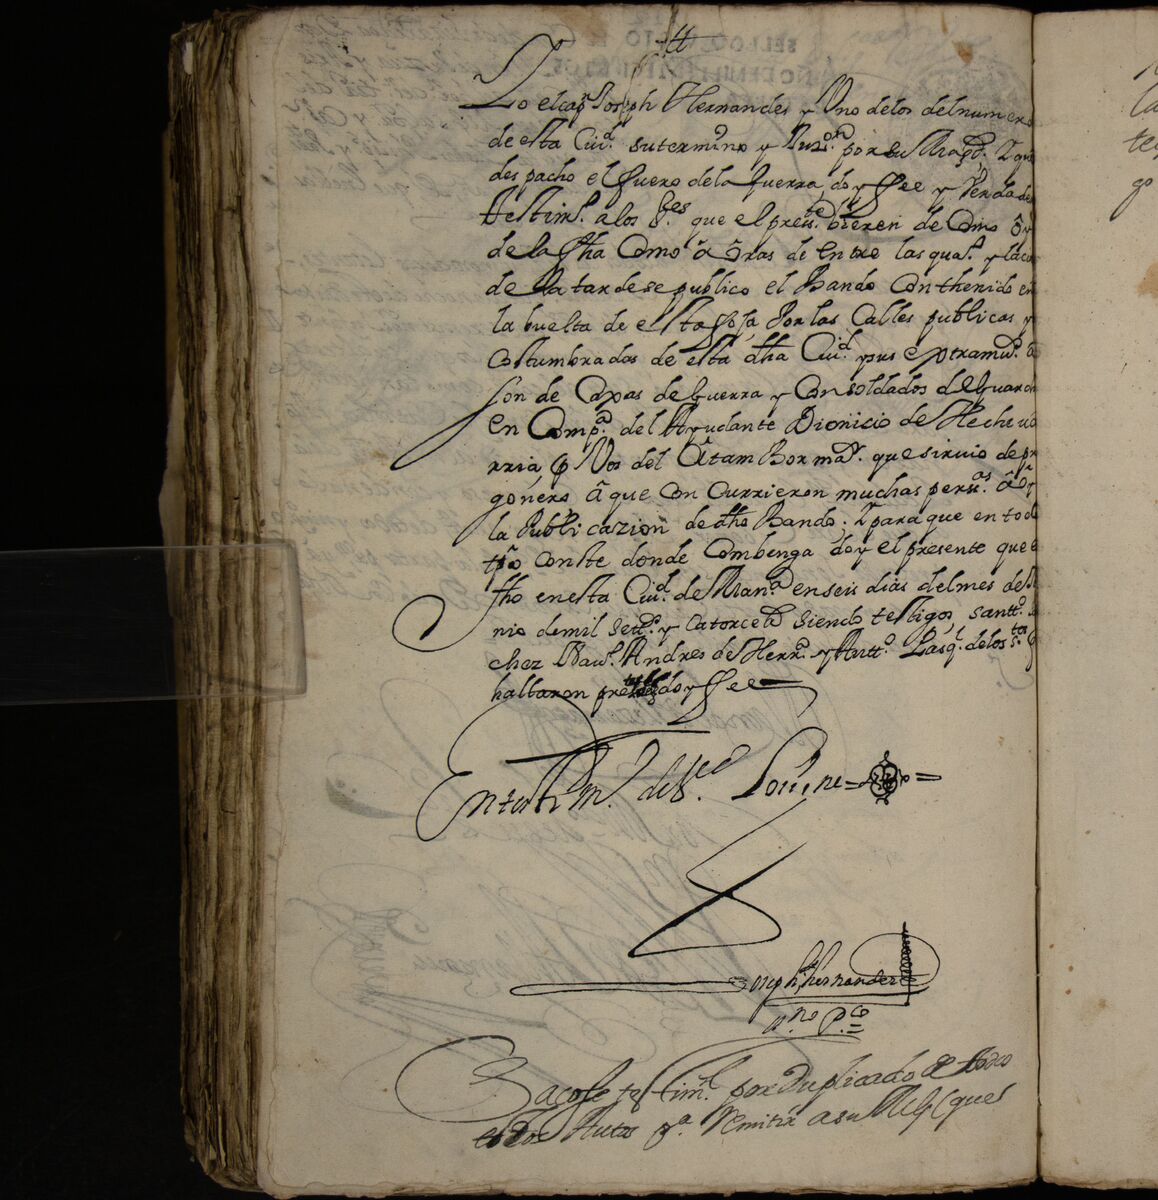 Yo el cap.n Joseph Hernandes y Vno de los del numero
de esta Ciu.d su termino y Jur.on por su Mag.d q
despacho el fuero de la guerra doy ffee y Verdade
testim.o a los S.res que el pres.te vieren de Como oy
de la fha Como a oras de entre las quat.o y
de la tarde se publico el Bando Conthenido en
la buelta de esta foja Por las Calles publicas y
Costumbradas de esta dha Ciu.d y sus extramu.s a
son de Caxas de guerra y Con soldados de Guar
en Comp.a del Ayudante Dionicio de Hecheva
rria y Vos del Atambor ma.r que siruio de pr
gonero a que Con Currieron muchas pers.as a oyr
la Publicazion de dho Bando. Y para que en todo
tpo conste donde Combenga doy el presente que
fho en esta Ciu.d de Man.a en seis dias del mes de Ju
nio de mil Sett.s y Catorce a.s Siendo testigos, Santt.o
chez Baw.a Andres de Herr.a y Antt.o Pasq.l de los S.tos q
hallaron pres.tes doy ffee
En testim.o de V.dd Lo sine
Joseph Hernandez
ss.no P.co
Sacose testim.o por Duplicado de todos
estos Autos p.a Remitir a su Mag.d ques